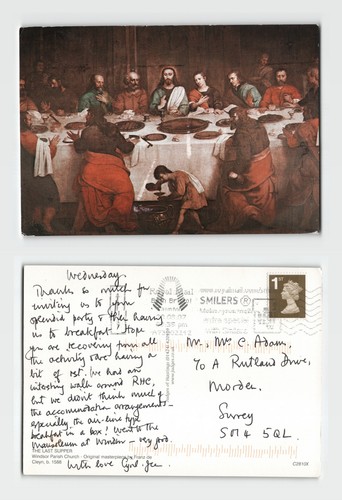 Wednesday.
Thanks so much for
inviting us to your
splendid party & then having
us to breakfast! Hope
you are recovering from all
the activity & are having a
bit of rest. We had an
interesting walk around RHC,
but we didn't think much of
the accommodation arrangements -
especially the air-line type
breakfast in a box! Went to the
Mausoleum at Windsor - very good.
With love
THE LAST SUPPER
Windsor Parish Church - Original masterpiece by Franz de
Cleyn, b. 1588
Royal Mail
SMILERS®
1st
Mr & Mrs C. Adam,
40 A Rutland Drive,
Morden,
Surrey
SM4 5QL.
C28108